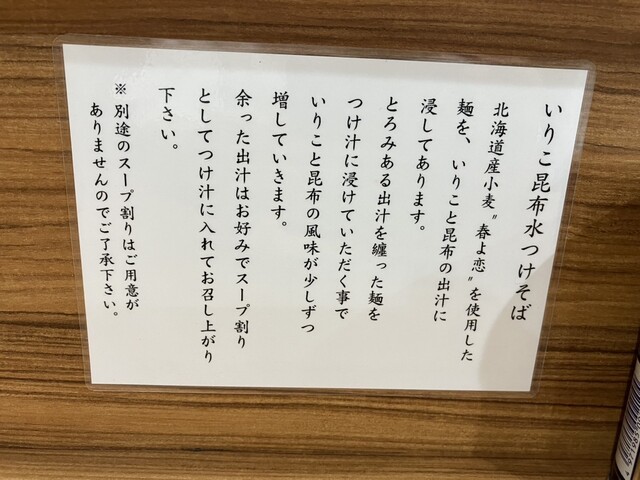 いりこ昆布水つけそば
北海道産小麦〝春よ恋〟を使用した
麺を、いりこと昆布の出汁に
浸してあります。
とろみある出汁を纏った麺を
つけ汁に浸けていただく事で
いりこと昆布の風味が少しずつ
増していきます。
余った出汁はお好みでスープ割り
としてつけ汁に入れてお召し上がり
下さい。
※別途のスープ割りはご用意が
ありませんのでご了承下さい。